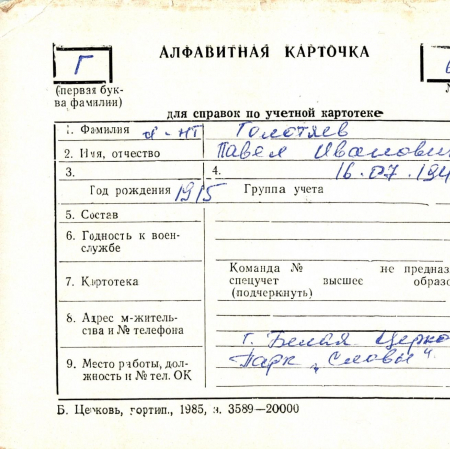 АЛФАВИТНАЯ КАРТОЧКА
Г
(первая бук-
ва фамилии)
для справок по учетной картотеке
1. Фамилия л-нт Голотяев
2. Имя, отчество Павел Иванович
3. 4. 16.07.194
Год рождения 1915 Группа учета
5. Состав
6. Годность к воен-
службе
7. Картотека
Команда № не предназ
спецучет высшее образо
(подчеркнуть)
8. Адрес м-житель-
ства и № телефона
г. Белая Церко
9. Место работы, дол-
жность и № тел. ОК
Парк „Славы“
Б. Церковь, гортип., 1985, з. 3589—20000